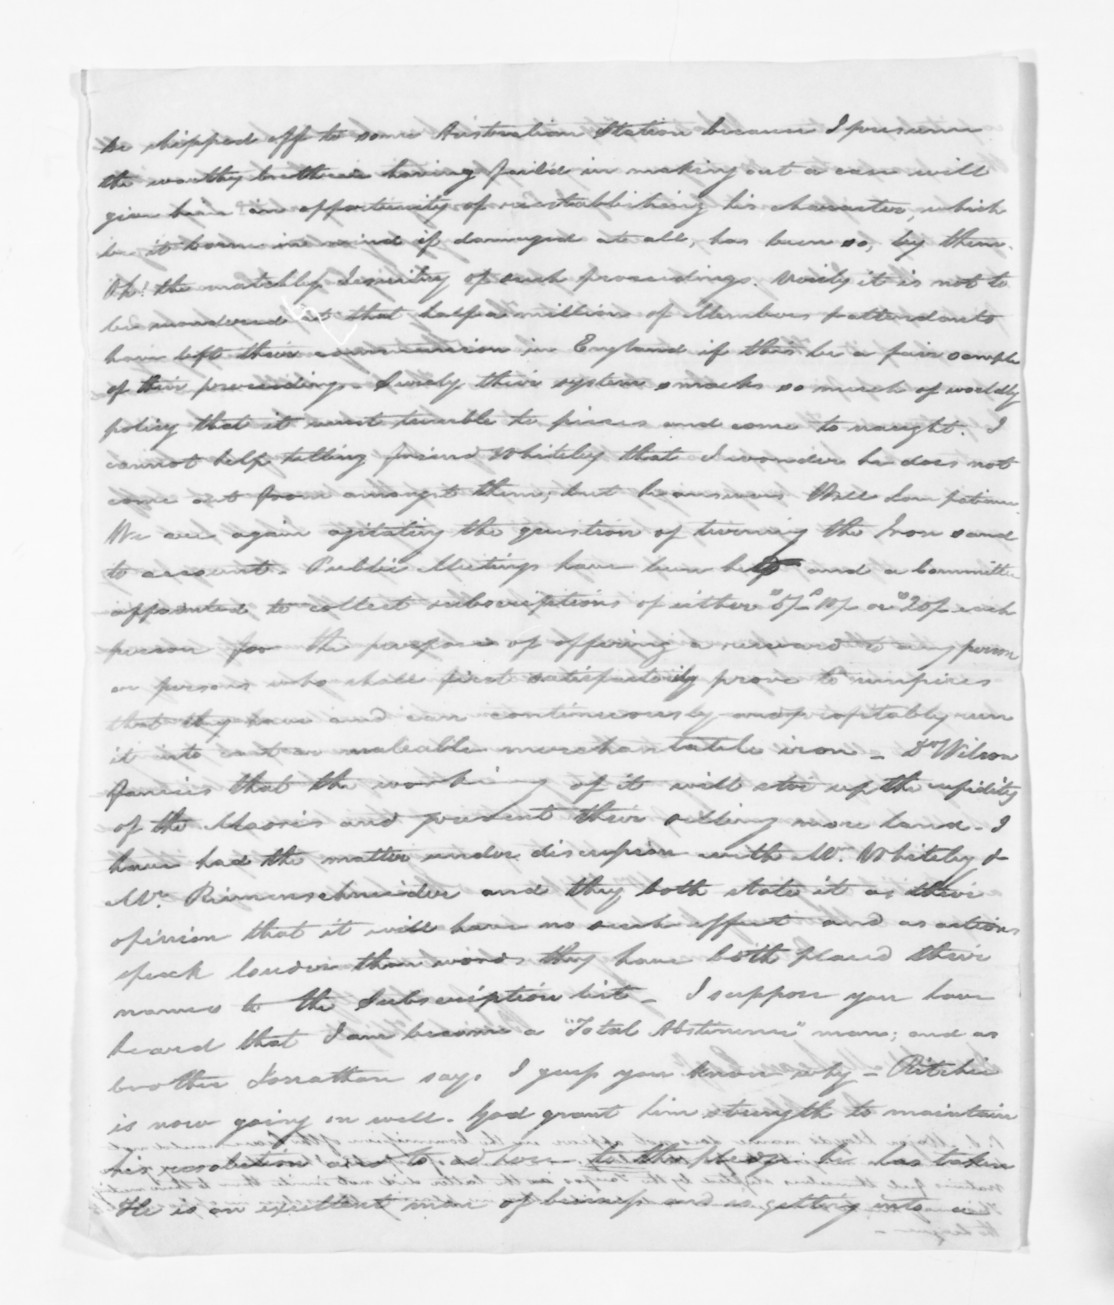 be shipped off to some Australian Station because I presume
the worthy brethren having faild in making out a case will
give him an opportunity of reestablishing his character, which
be it borne in mind if damaged at all, has been so, by them.
Oh! the matchless Jesuitry of such proceedings. Verily it is not to
be wondered at that half a million of Members & attendants
have left their connexion in England if this be a fair sample
of their proceedings. Surely their system smacks so much of worldly
policy that it must tumble to pieces and come to naught. I
cannot help telling friend Whiteley that I wonder he does not
come out from amongst them, but he answers
We are again agitating the question of turning the Iron sand
to account. Public Meetings have been held and a Committee
appointed to collect subscriptions of either 5/- 10/- or 20/- each
person for the purpose of offering a reward to any person
or persons who shall first satisfactorily prove to umpires
that they have and can continuously and profitably run
it into cast or maleable merchantable iron _ Dr Wilson
fancies that the working of it will stir up the cupidity
of the Maoris and prevent their selling more land. I
have had the matter under discussion with Mr. Whiteley &
Mr. Riemenschneider and they both state it as their
opinion that it will have no such effect and as actions
speak louder than words they have both placed their
names to the Subscription list _ I suppose you have
heard that I am become a "Total Abstinence" man; and as
brother Jonathan says I guess you know why _ Ritchie
is now going on well. God grant him strength to maintain
his resolution and to adhere to the pledge he has taken
He is an excellent man of business and is getting into a